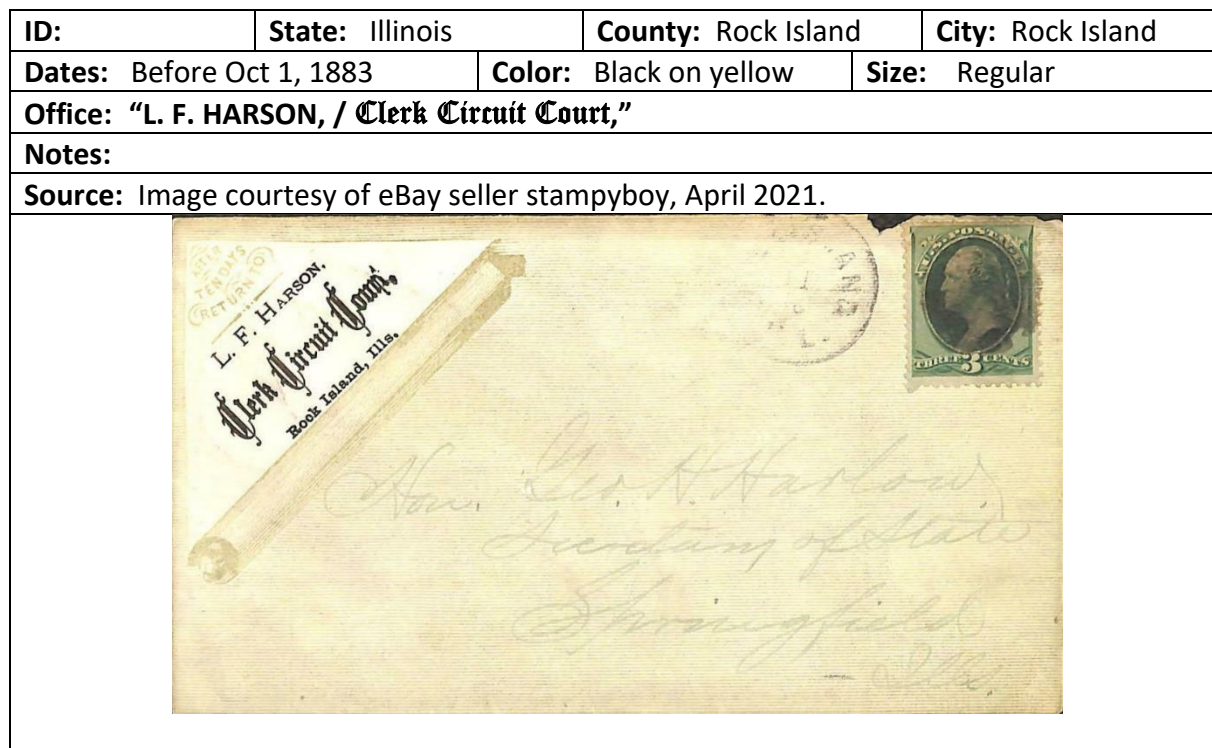 ID: State: Illinois County: Rock Island City: Rock Island
Dates: Before Oct 1, 1883 Color: Black on yellow Size: Regular
Office: “L. F. HARSON, / Clerk Circuit Court,”
Notes:
Source: Image courtesy of eBay seller stampyboy, April 2021.
AFTER
TEN DAYS
RETURN TO
L. F. HARSON,
Clerk Circuit Court,
Rock Island, Ills.
U.S. POSTAGE
THREE 3 CENTS
Hon. Geo. H. Harlow
Secretary of State
Springfield
Ills.